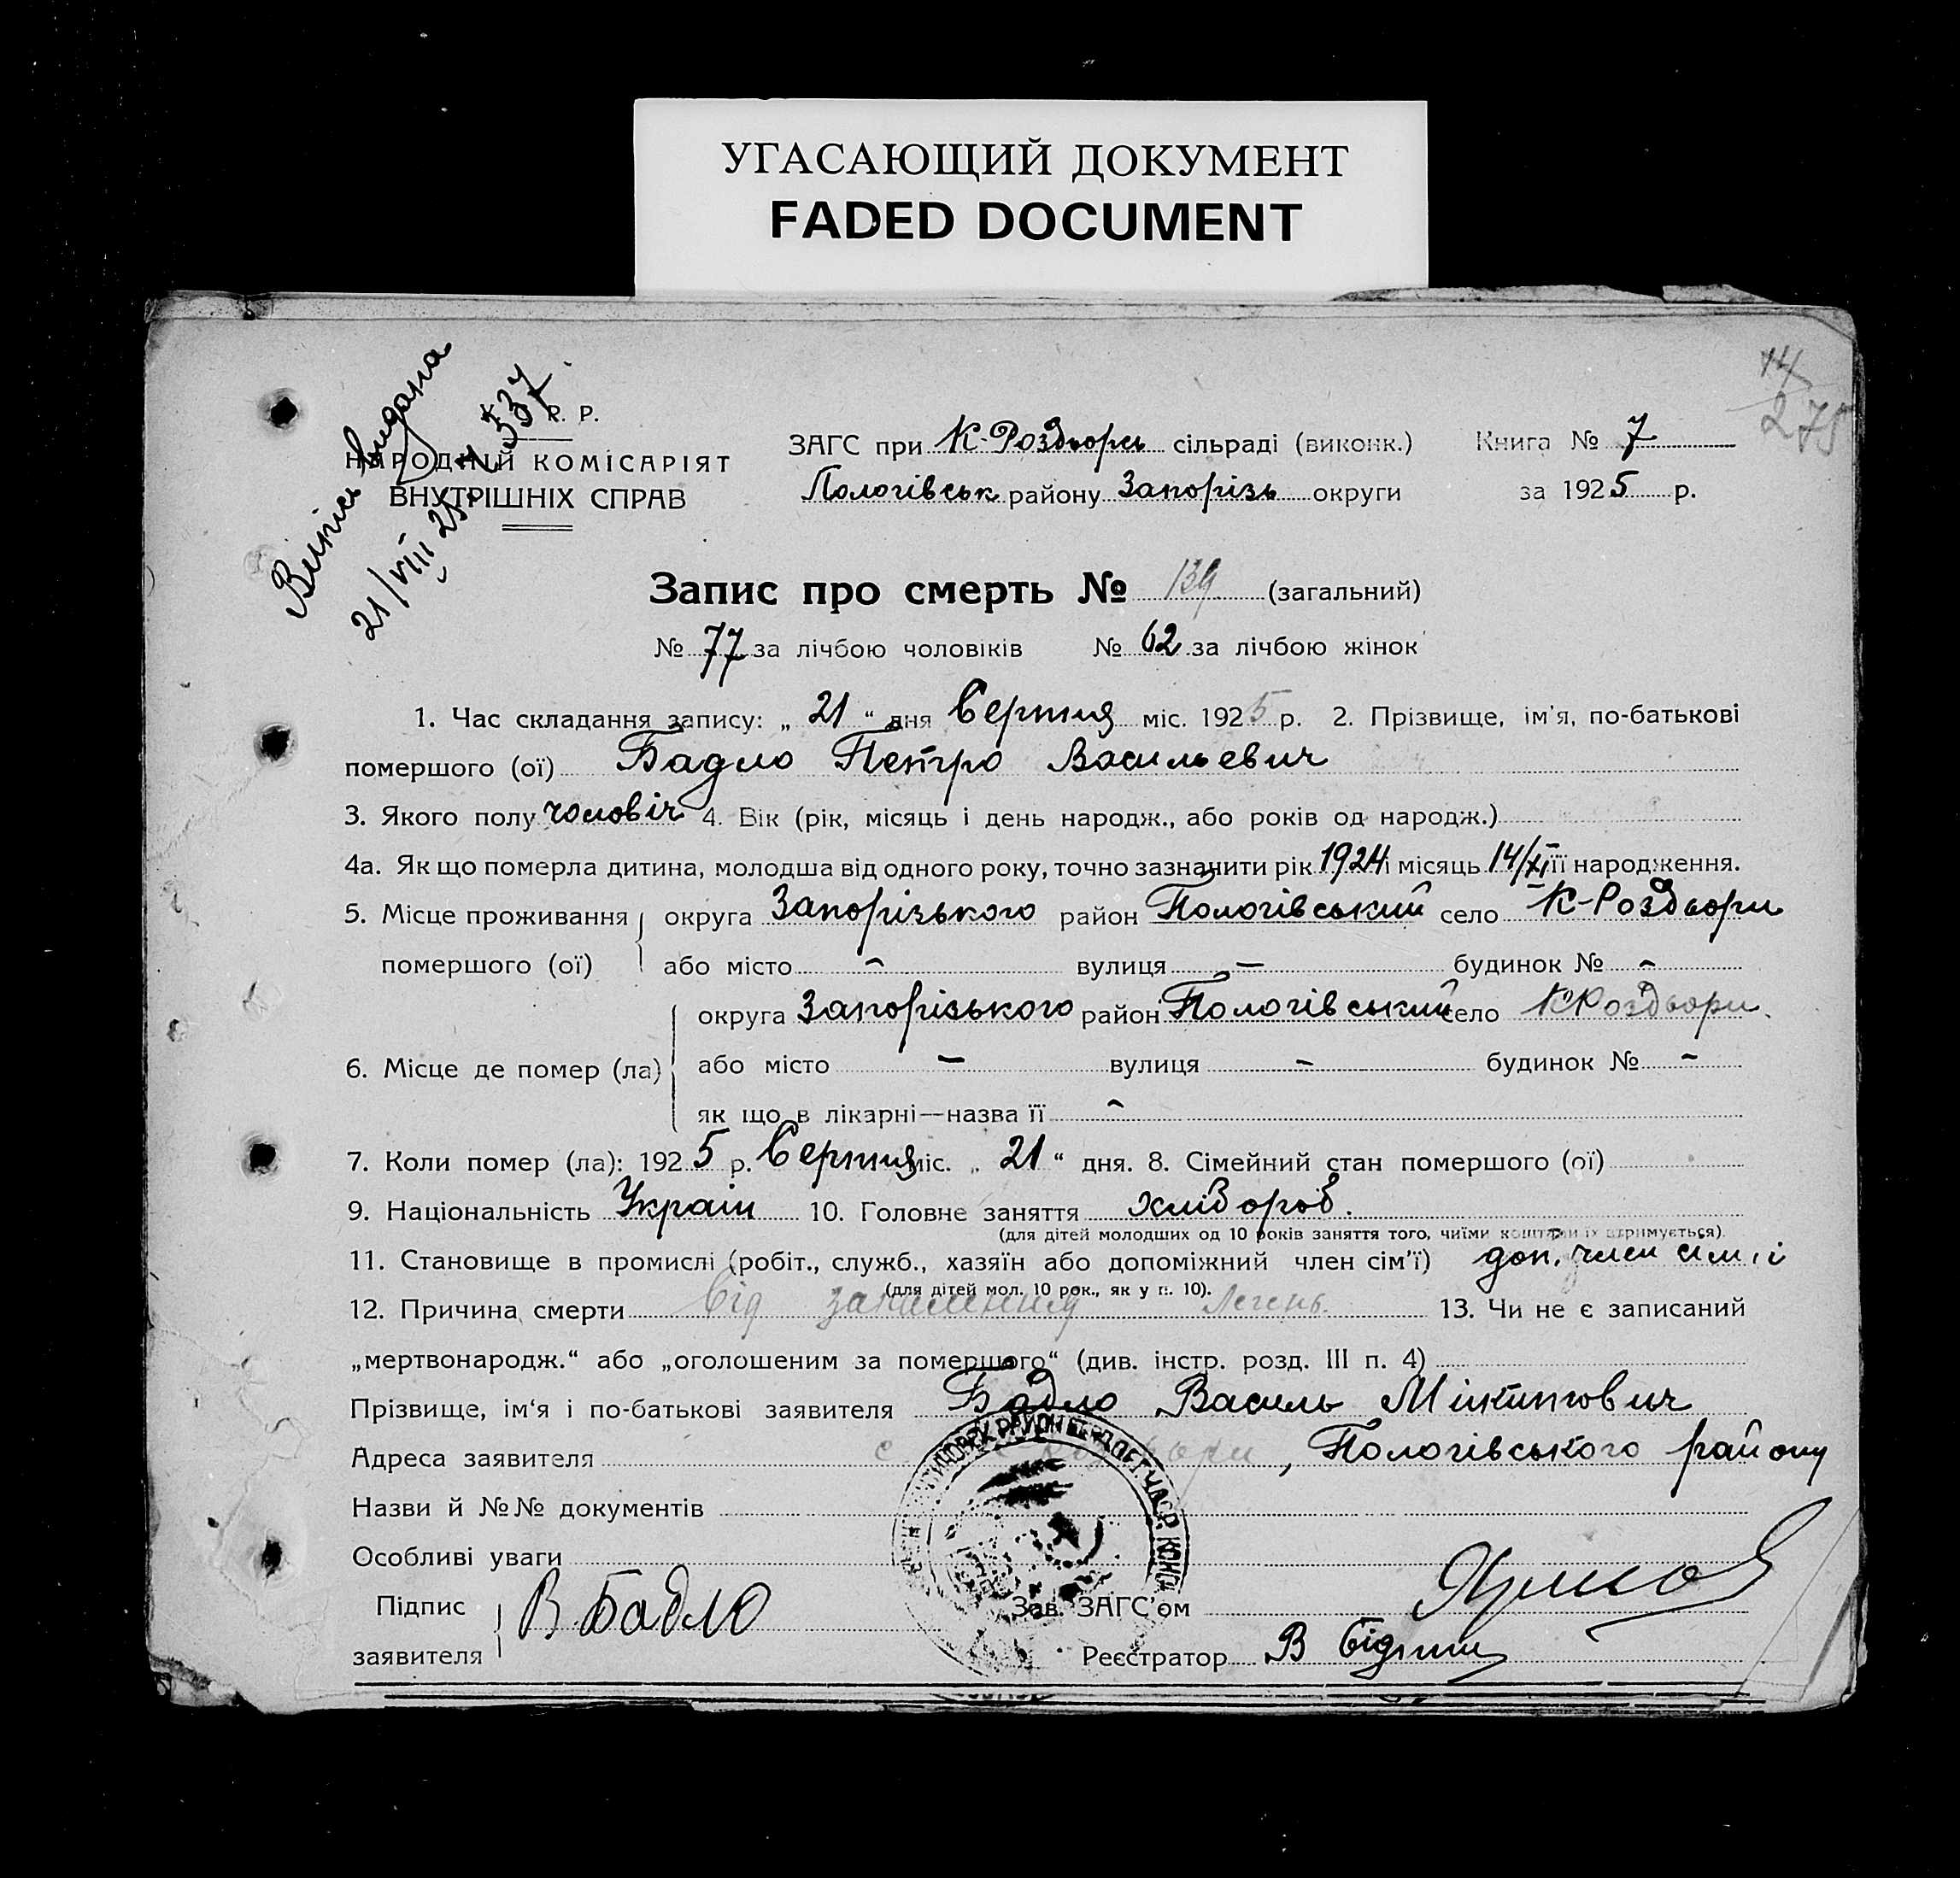 УГАСАЮЩИЙ ДОКУМЕНТ
FADED DOCUMENT
14
275
Випись видана
21/VIII 25 № 537
Р. Р.
НАРОДНІЙ КОМІСАРІЯТ
ВНУТРІШНІХ СПРАВ
ЗАГС при К-Роздорсь сільраді (виконк.) Книга № 7
Пологівськ району Запорізь округи за 1925 р.
Запис про смерть № 139 (загальний)
№ 77 за лічбою чоловіків № 62 за лічбою жінок
1. Час складання запису: „ 21 “ дня Серпня міс. 1925 р. 2. Прізвище, ім'я, по-батькові
помершого (ої) Бадло Петро Васильевич
3. Якого полу чоловіч 4. Вік (рік, місяць і день народж., або років од народж.)
4а. Як що померла дитина, молодша від одного року, точно зазначити рік 1924 і місяць 14/XI її народження.
5. Місце проживання округа Запорізького район Пологівський село К-Роздори
помершого (ої) або місто - вулиця - будинок № -
округа Запорізького район Пологівський село К Роздори.
6. Місце де помер (ла) або місто - вулиця - будинок № -
як що в лікарні—назва її -
7. Коли помер (ла): 1925 р. Серпня міс. „ 21 “ дня. 8. Сімейний стан помершого (ої)
9. Національність Україн 10. Головне заняття хлібороб.
(для дітей молодших од 10 років заняття того, чиїми коштами їх втримується).
11. Становище в промислі (робіт., служб., хазяїн або допоміжний член сім'ї) доп. член сімї
(для дітей мол. 10 рок., як у п. 10).
12. Причина смерти від запалення легень. 13. Чи не є записаний
„мертвонародж.“ або „оголошеним за помершого“ (див. інстр. розд. III п. 4)
Прізвище, ім'я і по-батькові заявителя Бадло Василь Мікитович
Адреса заявителя с. К-Роздори, Пологівського району
Назви й №№ документів
Особливі уваги
Підпис В Бадло Зав. ЗАГС'ом
заявителя Реєстратор В